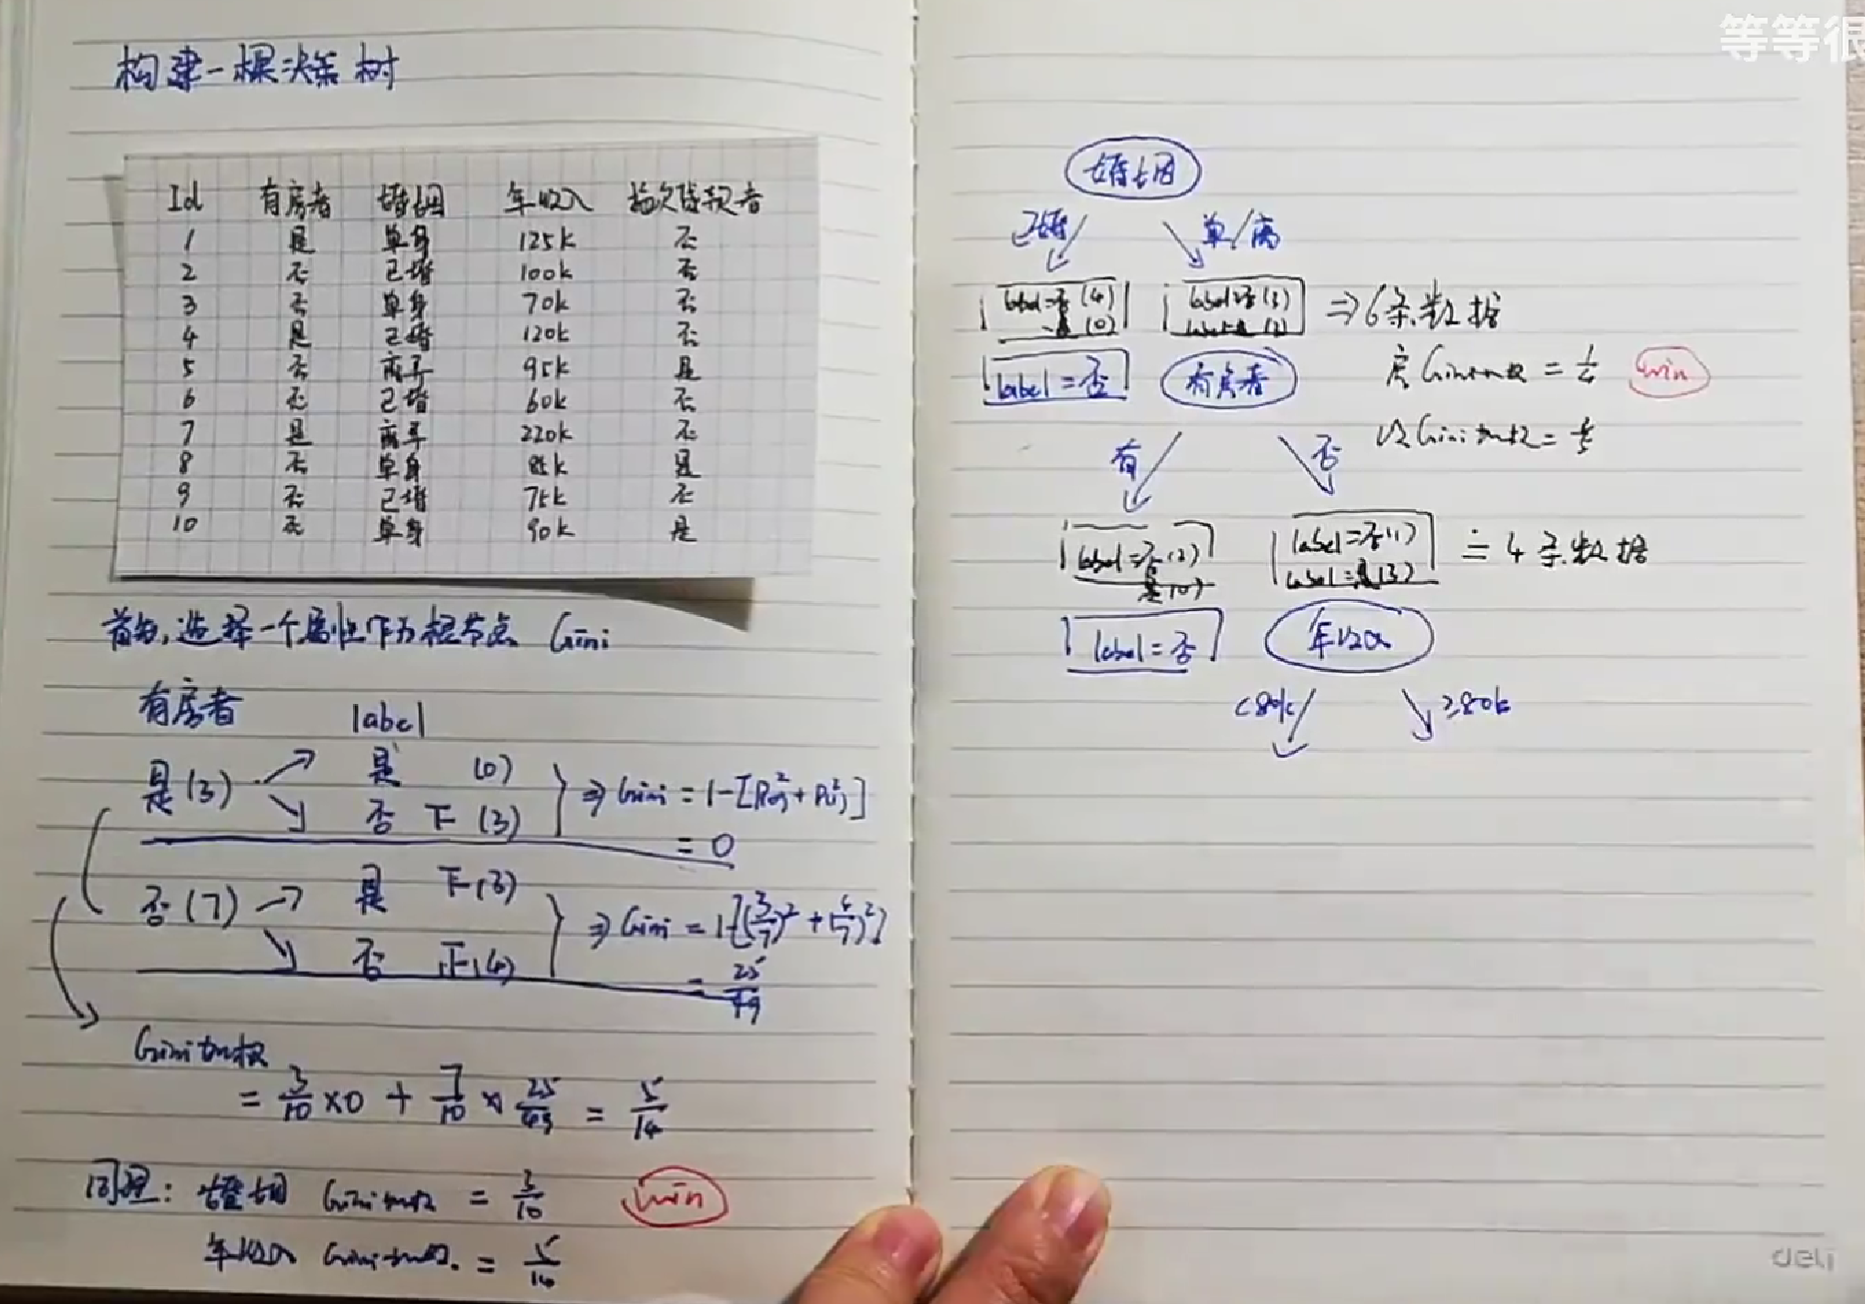 等等很
构建一棵决策树
Id 有房者 婚姻 年收入 拖欠贷款者
1 是 单身 125k 否
2 否 已婚 100k 否
3 否 单身 70k 否
4 是 已婚 120k 否
5 否 离异 95k 是
6 否 已婚 60k 否
7 是 离异 220k 否
8 否 单身 85k 是
9 否 已婚 75k 否
10 否 单身 90k 是
首先,选择一个属性作为根节点 Gini
有房者 label
是(3) → 是 (0)
↘ 否 (3) ⇒ Gini = 1-[P(是)²+P(否)²]
= 0
否(7) → 是 (3)
↘ 否 正(4) ⇒ Gini = 1-[(3/7)²+(4/7)²]
Gini加权
= 3/10 × 0 + 7/10 ×
同理: 婚姻 Gini加权 = 3/10 min
年收入 Gini加权 =
婚姻
已婚 单/离
label=否(4) label=否(3) ⇒ 6条数据
是(0) label=是(3)
房Gini加权 = min
label=否 有房者
收Gini加权 =
有 否
label=否(2) label=否(1) 4条数据
是(0) label=是(3)
label=否 年收入
<80k ≥80k
deli